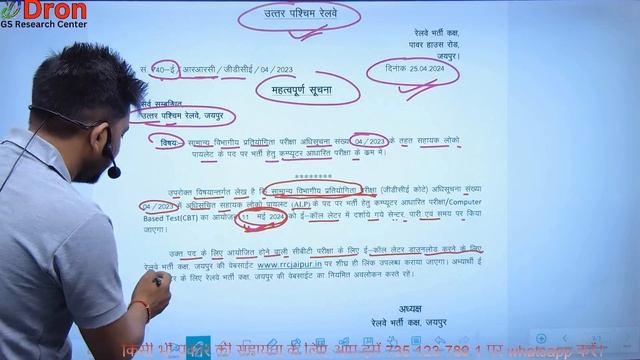 Dron
GS Research Center
उत्तर पश्चिम रेलवे
रेलवे भर्ती कक्ष,
पावर हाउस रोड,
जयपुर।
सं 740-ई/आरआरसी/जीडीसीई/04/2023
दिनांक 25.04.2024
महत्वपूर्ण सूचना
सर्व सम्बन्धित
उत्तर पश्चिम रेलवे, जयपुर
विषय:- सामान्य विभागीय प्रतियोगिता परीक्षा अधिसूचना संख्या 04/2023 के तहत सहायक लोको
पायलेट के पद पर भर्ती हेतु कम्प्यूटर आधारित परीक्षा के क्रम में।
********
उपरोक्त विषयान्तर्गत लेख है कि सामान्य विभागीय प्रतियोगिता परीक्षा (जीडीसीई कोटे) अधिसूचना संख्या
04/2023 में अधिसूचित सहायक लोको पायलेट (ALP) के पद पर भर्ती हेतु कम्प्यूटर आधारित परीक्षा/Computer
Based Test(CBT) का आयोजन 11 मई 2024 को ई-कॉल लेटर में दर्शाये गये सेन्टर, पारी एवं समय पर किया
जाएगा।
उक्त पद के लिए आयोजित होने वाली सीबीटी परीक्षा के लिए ई-कॉल लेटर डाउनलोड करने के लिए
रेलवे भर्ती कक्ष, जयपुर की वेबसाईट www.rrcjaipur.in पर शीघ्र ही लिंक उपलब्ध कराया जाएगा। अभ्यार्थी ई
के लिए रेलवे भर्ती कक्ष, जयपुर की वेबसाईट का नियमित अवलोकन करते रहे।
अध्यक्ष
रेलवे भर्ती कक्ष, जयपुर
किसी भी प्रकार की सहायता के लिए आप हमें 735 123 789 1 पर whatsapp करें।